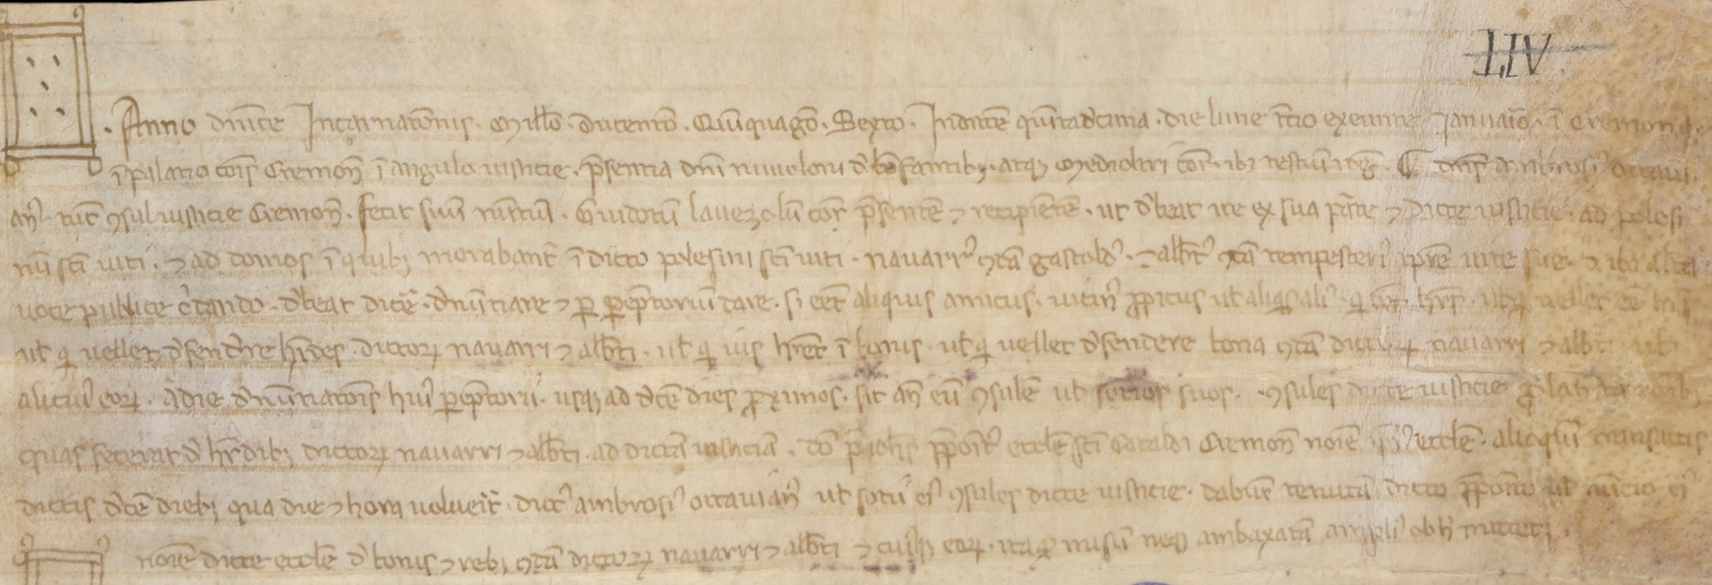 LIV
. Anno dn̄ice Incarnatōnis . Mill̄o . ducentō . Quīquagō . Sexto . Indictē quītadecima . die lune t̄cio exeunte Januaīo . ī Cremona .
ī palatio cōis Cremoñ ī angulo iusticie . p̄sentia dn̄i nuuoloni d̄ atq; Mediolati ibi testiū rog̃ . dn̄s Ambrosiꝰ octaui
añꝰ . tūc ꝯsul iusticie Cremoñ . fecit suū nūtiū . Guidotū lauezolū cor̄ p̄sentē ⁊ recipientē . ut d̄beat ire ex sua p̄te ⁊ dicte iusticie . ad polesi
nū sc̄i uiti . ⁊ ad domos ī quib; morabant̄ ī dicto polesini sc̄i uiti . nauarrꝰ ꝯdā gastoldꝰ . ⁊ alb̄tꝰ ꝯdā tempesteriꝰ tp̄re uite sue . ⁊ ibi alta
uoce publice c̄dando . d̄beat dicē . d̄nūtiare ⁊ p̱ p̱ēptoriū dare . si eēt aliquis amicus . uicinꝰ p̱picus ul̄ aliq̄s aliꝰ . q̄ uellet eē
ul̄ q̄ uellet d̄fend̄e hēdes . dictoꝝ nauarri ⁊ alb̄ti . ul̄ q̄ ius h̄ret ī bonis . ul̄ q̄ uellet d̄fendere bona ꝯdā dictoꝝ nauarri ⁊ alb̄ti ul̄
alicuiꝰ eoꝝ . a die d̄nūtiatōis huiꝰ p̱ēptorii . usq; ad decē dies p̱ximos . sit añ eū ꝯsulē ul̄ socios suos . ꝯsules dicte iusticie
quas fecerat d̄ h̄edib; dictoꝝ nauarri ⁊ alb̄ti . ad dictā iusticiā . dō p̱ōitꝰ eccl̄e sc̄i Cataldi Cremoñ noīe ip̄iꝰ eccl̄e . alioquī transactis
dictis decē dieb; qua die ⁊ hora uoluerit̄ . dictꝰ ambrosiꝰ octauiañꝰ ul̄ sotii eiꝰ ꝯsules dicte iusticie . dabūt tenutā dicto p̱ōito ul̄ nūcio eiꝰ
noīe dicte eccl̄e d̄ bonis ⁊ reb; ꝯdā dictoꝝ nauarri ⁊ alb̄ti ⁊ cuiusq; eoꝝ . ita ꝙ missū neq; ambaxatā ampliꝰ mittet .